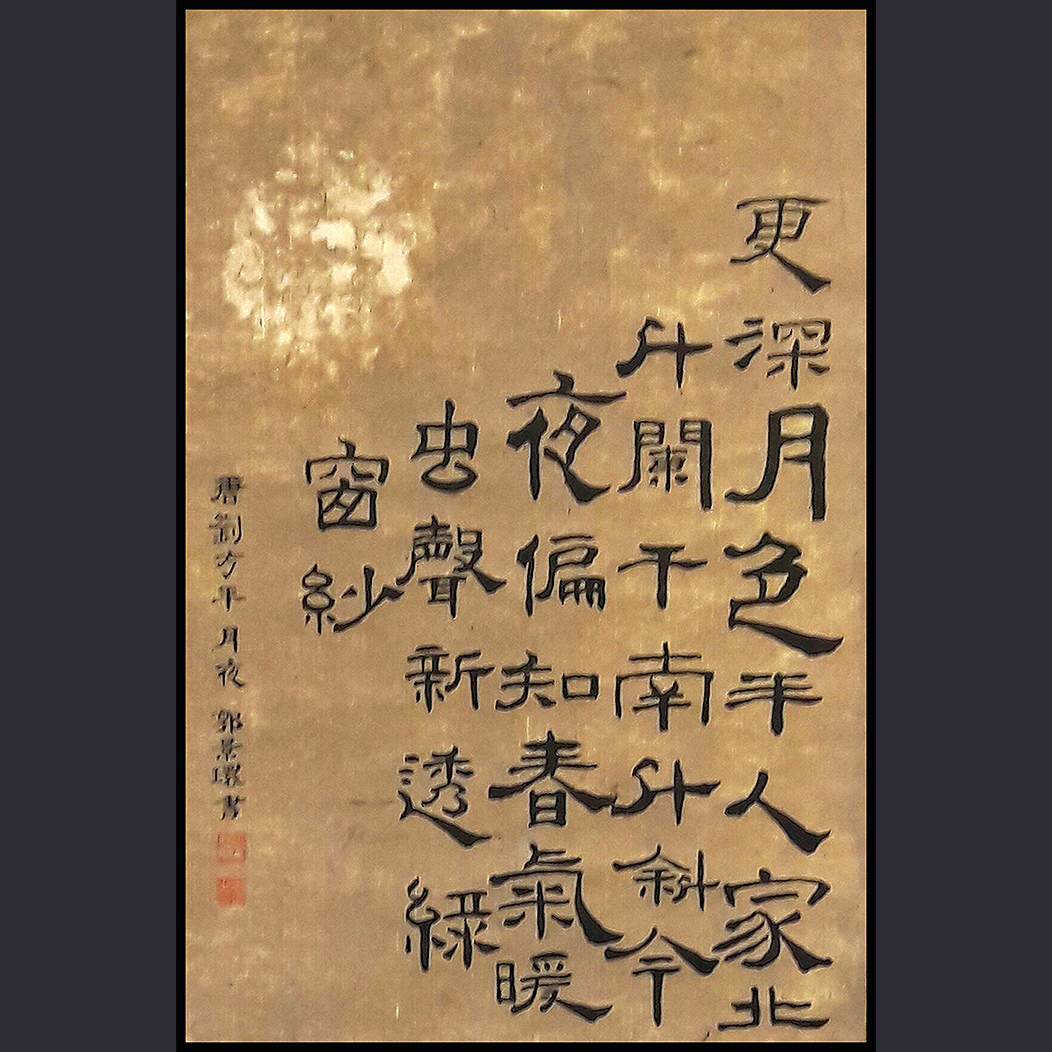 更深月色半人家北
斗闌干南斗斜今
夜偏知春氣暖
虫聲新透綠
窗紗
唐劉方平月夜 郭景環書